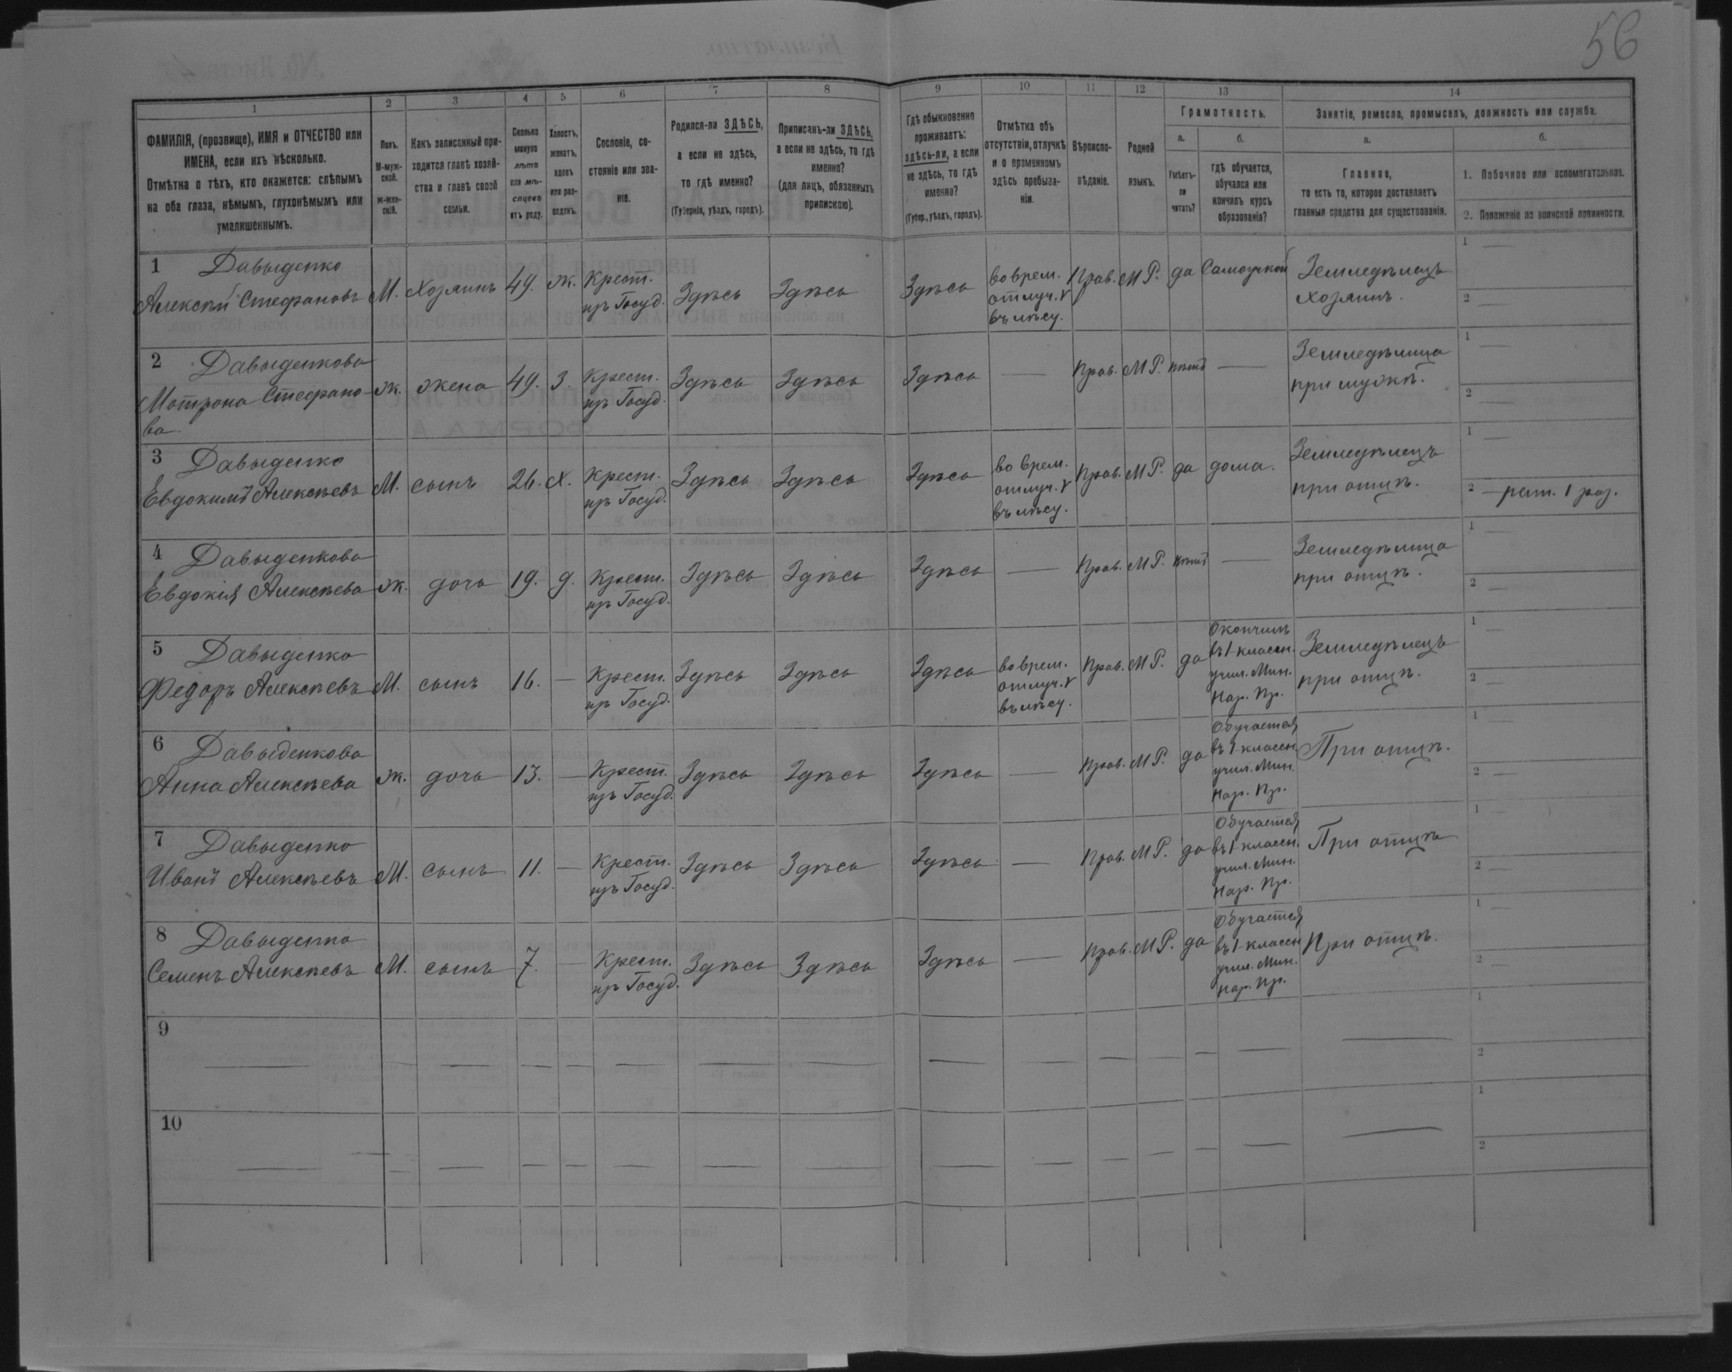 56
1
2
3
4
5
6
7
8
9
10
11
12
13
14
ФАМИЛІЯ, (прозвище), ИМЯ и ОТЧЕСТВО или
ИМЕНА, если ихъ нѣсколько.
Отмѣтка о тѣхъ, кто окажется: слѣпымъ
на оба глаза, нѣмымъ, глухонѣмымъ или
умалишеннымъ.
Полъ.
М-муж-
ской.
Ж-жен-
скій.
Какъ записанный при-
ходится главѣ хозяй-
ства и главѣ своей
семьи.
Сколько
минуло
лѣтъ
или мѣ-
сяцевъ
отъ роду.
Холостъ,
женатъ,
вдовъ
или раз-
веденъ.
Сословіе, со-
стояніе или зва-
ніе.
Родился-ли ЗДѢСЬ,
а если не здѣсь,
то гдѣ именно?
(Губернія, уѣздъ, городъ).
Приписанъ-ли ЗДѢСЬ,
а если не здѣсь, то гдѣ
именно?
(для лицъ, обязанныхъ
припискою).
Гдѣ обыкновенно
проживаетъ:
здѣсь-ли, а если
не здѣсь, то гдѣ
именно?
(Губер., уѣздъ, городъ).
Отмѣтка объ
отсутствіи, отлучкѣ
и о временномъ
здѣсь пребыва-
ніи.
Вѣроиспо-
вѣданіе.
Родной
языкъ.
Грамотность.
а.
Умѣетъ-
ли
читать?
б.
гдѣ обучается,
обучался или
кончилъ курсъ
образованія?
Занятіе, ремесло, промыселъ, должность или служба.
а.
Главное,
то есть то, которое доставляетъ
главныя средства для существованія.
б.
1. Побочное или вспомогательное.
2. Положеніе по воинской повинности.
1 Давыденко
Алексѣй Стефановъ М. Хозяинъ 49. ж. Крест. изъ Госуд. Здѣсь Здѣсь Здѣсь во врем. отлуч. въ лѣсу. Прав. М Р. да Самоучкой Земледѣлецъ хозяинъ.
1 —
2 —
2 Давыденкова
Мотрона Стефано-
ва ж. жена 49. З. Крест. изъ Госуд. Здѣсь Здѣсь Здѣсь — Прав. М Р. нѣтъ — Земледѣлица при мужѣ.
1 —
2 —
3 Давыденко
Евдокимъ Алексѣевъ М. сынъ 26. Х. Крест. изъ Госуд. Здѣсь Здѣсь Здѣсь во врем. отлуч. въ лѣсу. Прав. М Р. да дома. Земледѣлецъ при отцѣ.
1 —
2 — рат. 1 раз.
4 Давыденкова
Евдокія Алексѣева ж. дочь 19. д. Крест. изъ Госуд. Здѣсь Здѣсь Здѣсь — Прав. М Р. нѣтъ — Земледѣлица при отцѣ.
1 —
2 —
5 Давыденко
Федоръ Алексѣевъ М. сынъ 16. — Крест. изъ Госуд. Здѣсь Здѣсь Здѣсь во врем. отлуч. въ лѣсу. Прав. М Р. да Окончилъ въ 1 классн. учил. Мин. Нар. Пр. Земледѣлецъ при отцѣ.
1 —
2 —
6 Давыденкова
Анна Алексѣева ж. дочь 13. — Крест. изъ Госуд. Здѣсь Здѣсь Здѣсь — Прав. М Р. да Обучается въ 1 классн. учил. Мин. Нар. Пр. При отцѣ.
1 —
2 —
7 Давыденко
Иванъ Алексѣевъ М. сынъ 11. — Крест. изъ Госуд. Здѣсь Здѣсь Здѣсь — Прав. М Р. да Обучается въ 1 классн. учил. Мин. Нар. Пр. При отцѣ
1 —
2 —
8 Давыденко
Семенъ Алексѣевъ М. сынъ 7. — Крест. изъ Госуд. Здѣсь Здѣсь Здѣсь — Прав. М Р. да Обучается въ 1 классн. учил. Мин. Нар. Пр. При отцѣ.
1 —
2 —
9
1
2
10
1
2